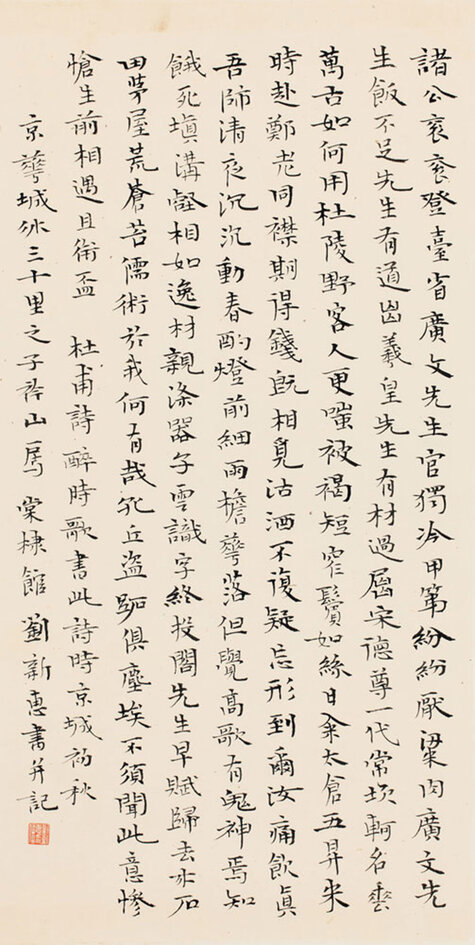 諸公衮衮登臺省廣文先生官獨冷甲第紛紛厭粱肉廣文先
生飯不足先生有道出羲皇先生有材過屈宋德尊一代常坎軻名垂
萬古如何用杜陵野客人更嗤被褐短窄鬢如絲日籴太倉五昇米
時赴鄭老同襟期得錢既相覓沽酒不復疑忘形到爾汝痛飲真
吾師清夜沉沉動春酌燈前細雨檐華落但覺高歌有鬼神焉知
餓死填溝壑相如逸材親滌器子雲識字終投閣先生早賦歸去来石
田茅屋荒蒼苔儒術於我何有哉孔丘盜跖俱塵埃不須聞此意慘
愴生前相遇且銜盃 杜甫詩醉時歌書此詩時京城初秋
京華城外三十里之子山房棠棣館劉新惠書并記